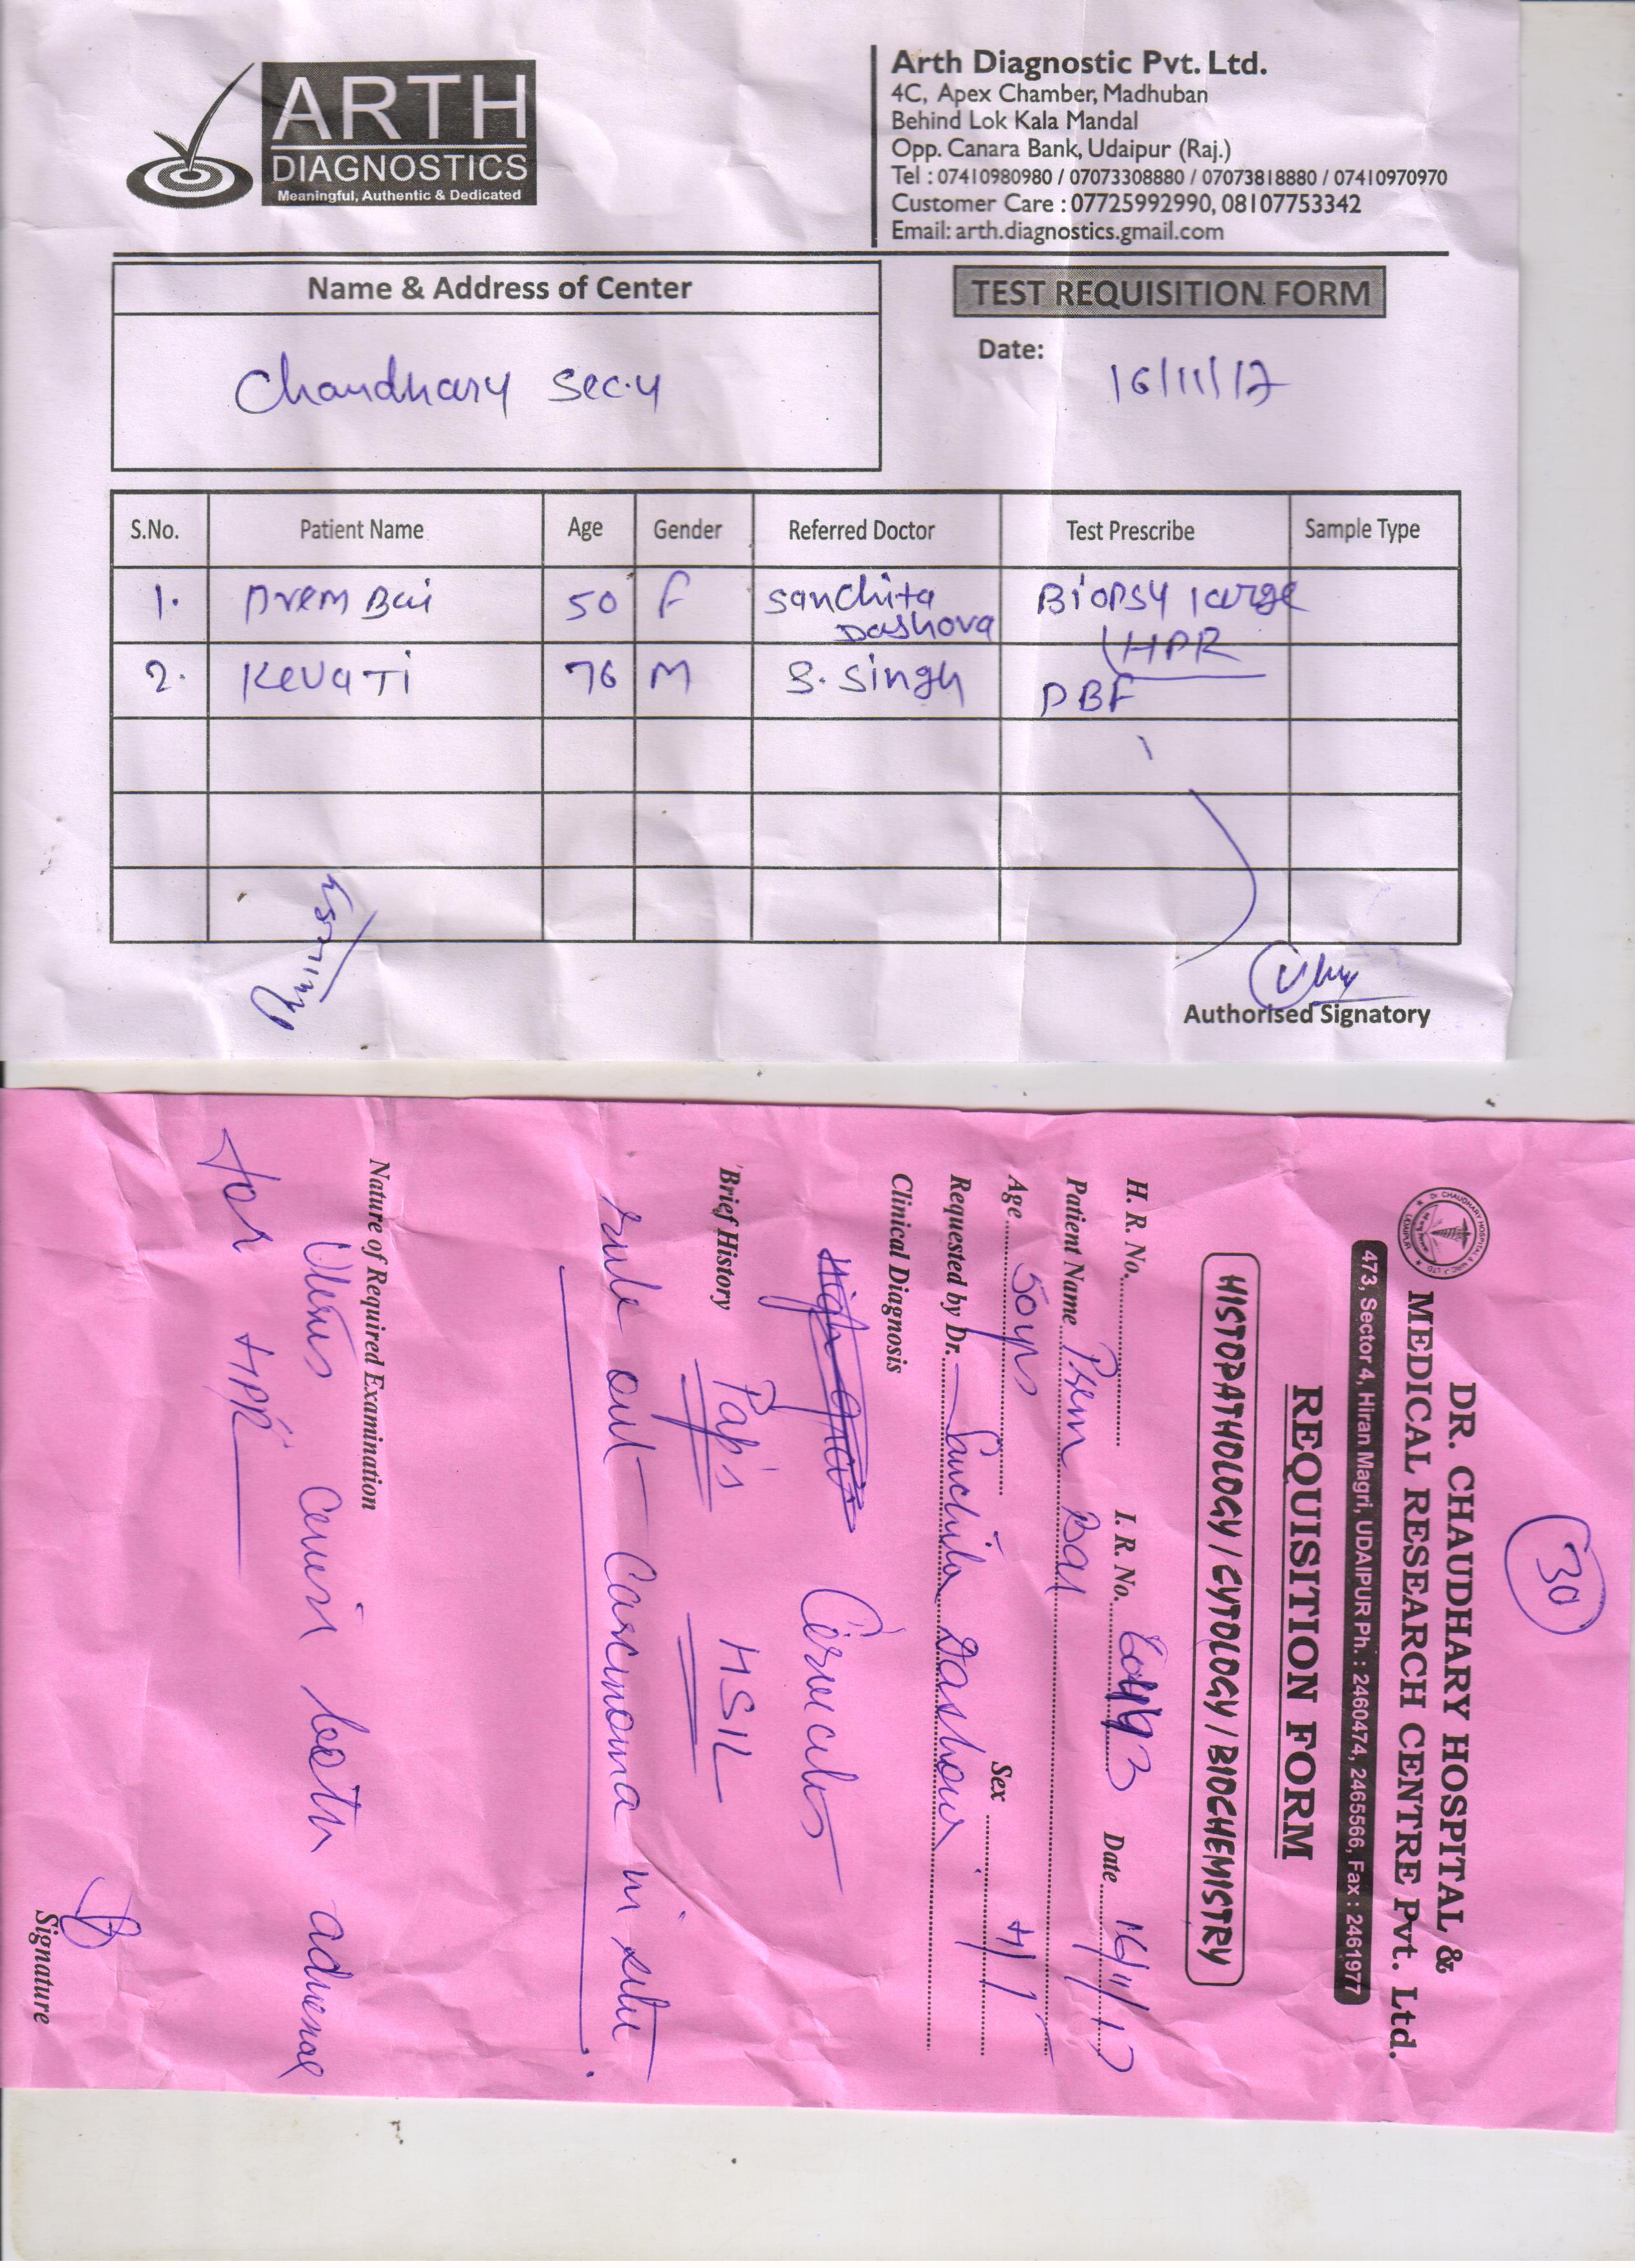 ARTH
DIAGNOSTICS
Meaningful, Authentic & Dedicated
Arth Diagnostic Pvt. Ltd.
4C, Apex Chamber, Madhuban
Behind Lok Kala Mandal
Opp. Canara Bank, Udaipur (Raj.)
Tel : 07410980980 / 07073308880 / 07073818880 / 07410970970
Customer Care : 07725992990, 08107753342
Email: arth.diagnostics.gmail.com
Name & Address of Center
TEST REQUISITION FORM
Chaudhary Sec.4
Date:
16/11/17
S.No. Patient Name Age Gender Referred Doctor Test Prescribe Sample Type
1. Prem Bai 50 F Sanchita Dashora Biopsy large
HPR
2. Kevati 76 M S. Singh PBF
Authorised Signatory
30
DR. CHAUDHARY HOSPITAL &
MEDICAL RESEARCH CENTRE Pvt. Ltd.
473, Sector 4, Hiran Magri, UDAIPUR Ph. : 2460474, 2465566, Fax : 2461977
REQUISITION FORM
HISTOPATHOLOGY / CYTOLOGY / BIOCHEMISTRY
H. R. No. I. R. No. Date 16/11/17
Patient Name Prem Bai
Age 50yrs Sex
Requested by Dr. Sanchita Dashora
Clinical Diagnosis
Brief History Pap's HSIL
rule out Carcinoma in situ
Nature of Required Examination
Uterus Cervix both adnexae
for HPR
Signature